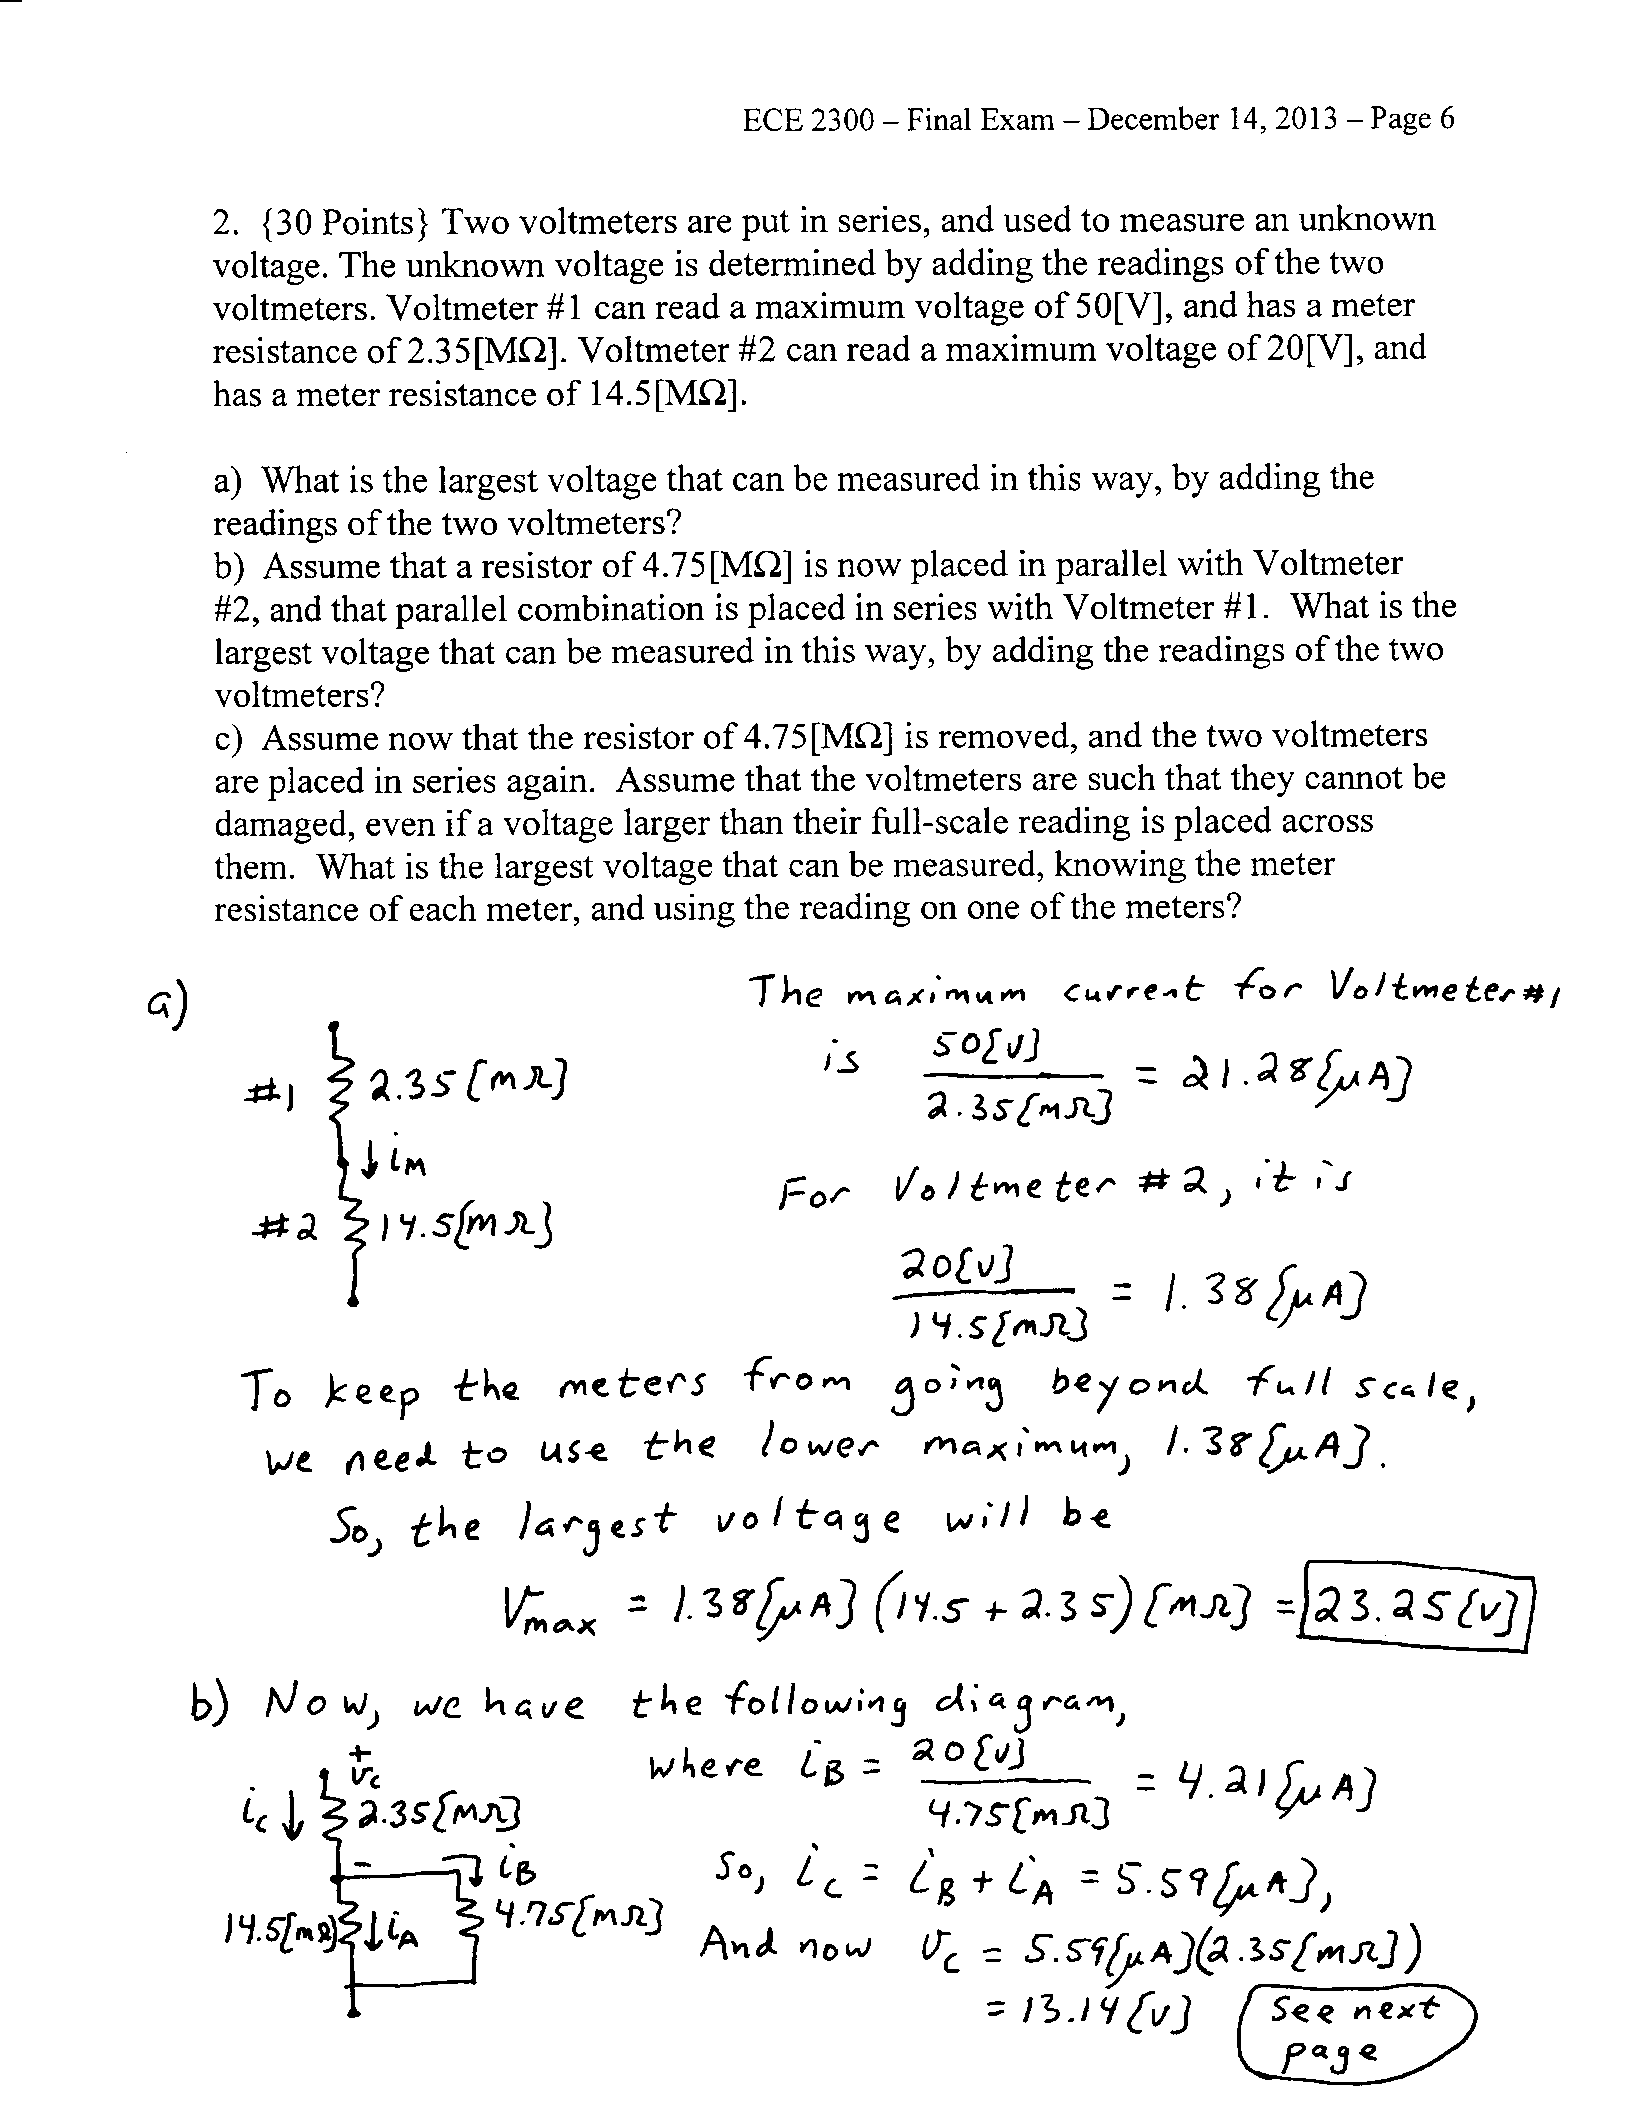 ECE 2300 – Final Exam – December 14, 2013 – Page 6
2. {30 Points} Two voltmeters are put in series, and used to measure an unknown
voltage. The unknown voltage is determined by adding the readings of the two
voltmeters. Voltmeter #1 can read a maximum voltage of 50[V], and has a meter
resistance of 2.35[MΩ]. Voltmeter #2 can read a maximum voltage of 20[V], and
has a meter resistance of 14.5[MΩ].
a) What is the largest voltage that can be measured in this way, by adding the
readings of the two voltmeters?
b) Assume that a resistor of 4.75[MΩ] is now placed in parallel with Voltmeter
#2, and that parallel combination is placed in series with Voltmeter #1. What is the
largest voltage that can be measured in this way, by adding the readings of the two
voltmeters?
c) Assume now that the resistor of 4.75[MΩ] is removed, and the two voltmeters
are placed in series again. Assume that the voltmeters are such that they cannot be
damaged, even if a voltage larger than their full-scale reading is placed across
them. What is the largest voltage that can be measured, knowing the meter
resistance of each meter, and using the reading on one of the meters?
a)
#1 2.35[MΩ]
iM
#2 14.5[MΩ]
The maximum current for Voltmeter #1
is 50[V] / 2.35[MΩ] = 21.28[μA]
For Voltmeter #2, it is
20[V] / 14.5[MΩ] = 1.38[μA]
To keep the meters from going beyond full scale,
we need to use the lower maximum, 1.38[μA].
So, the largest voltage will be
Vmax = 1.38[μA](14.5 + 2.35)[MΩ] = 23.25[V]
b) Now, we have the following diagram,
+
vc
ic 2.35[MΩ]
− iB
14.5[MΩ] iA 4.75[MΩ]
where iB = 20[V] / 4.75[MΩ] = 4.21[μA]
So, ic = iB + iA = 5.59[μA],
And now vc = 5.59[μA](2.35[MΩ])
= 13.14[V]
See next
page